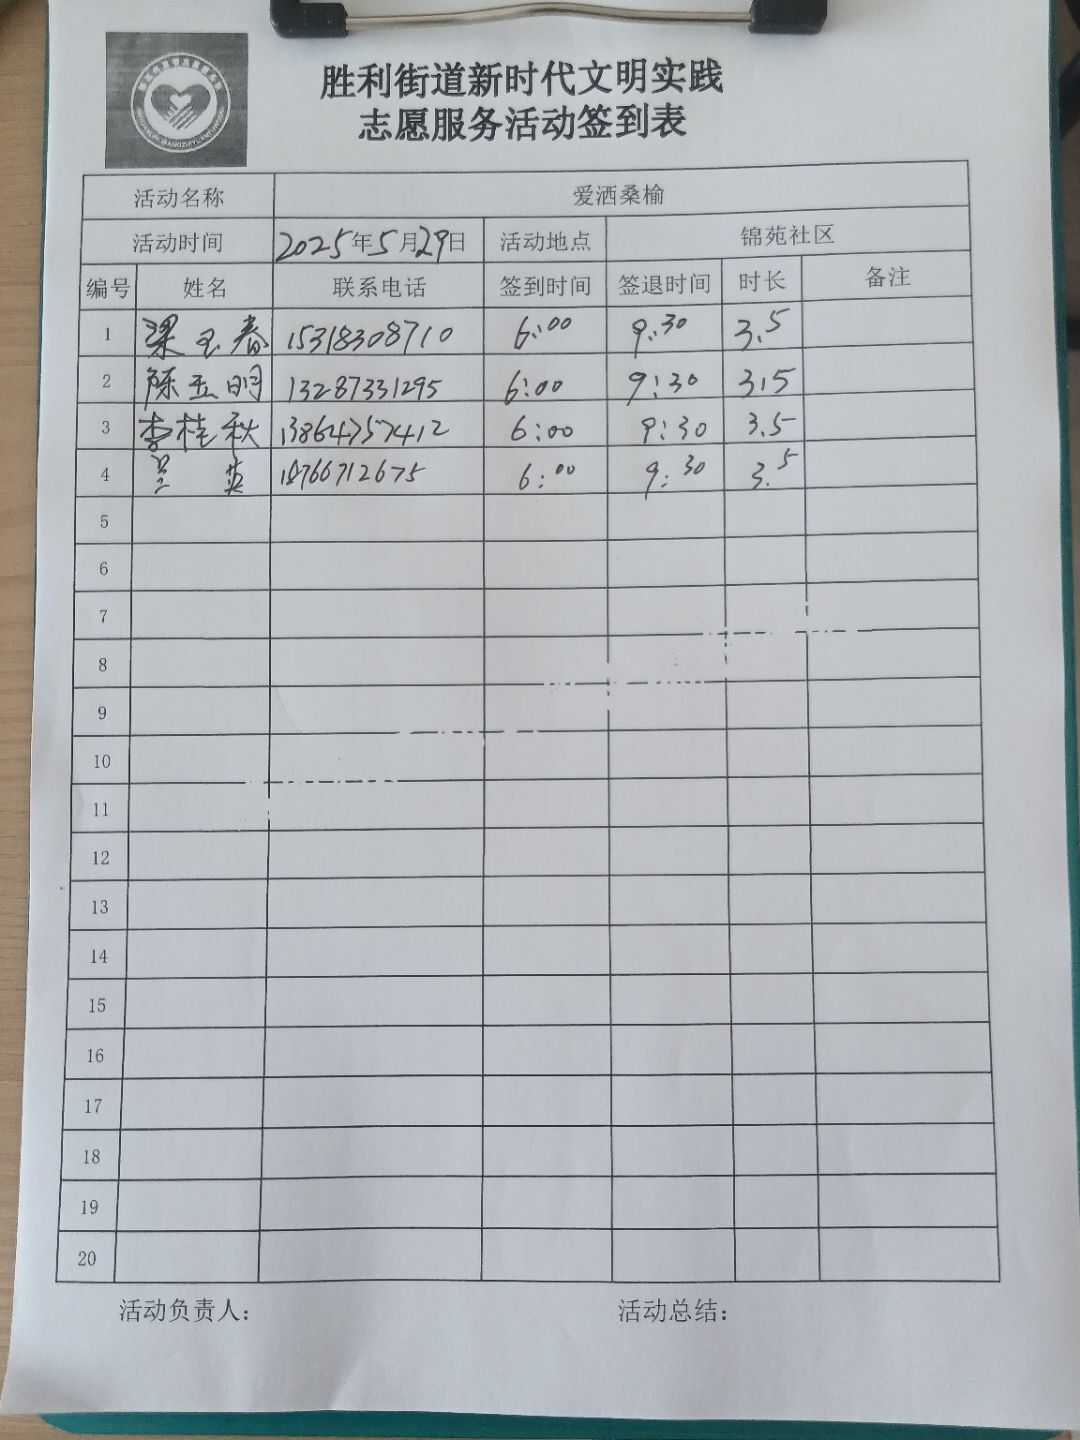 胜利街道新时代文明实践
志愿服务活动签到表
活动名称 爱洒桑榆
活动时间 2025年5月29日 活动地点 锦苑社区
编号 姓名 联系电话 签到时间 签退时间 时长 备注
1 梁玉春 15318308710 6:00 9:30 3.5
2 陈玉明 13287331295 6:00 9:30 3.5
3 李桂秋 13864757412 6:00 9:30 3.5
4 兰英 18766712675 6:00 9:30 3.5
5
6
7
8
9
10
11
12
13
14
15
16
17
18
19
20
活动负责人: 活动总结: